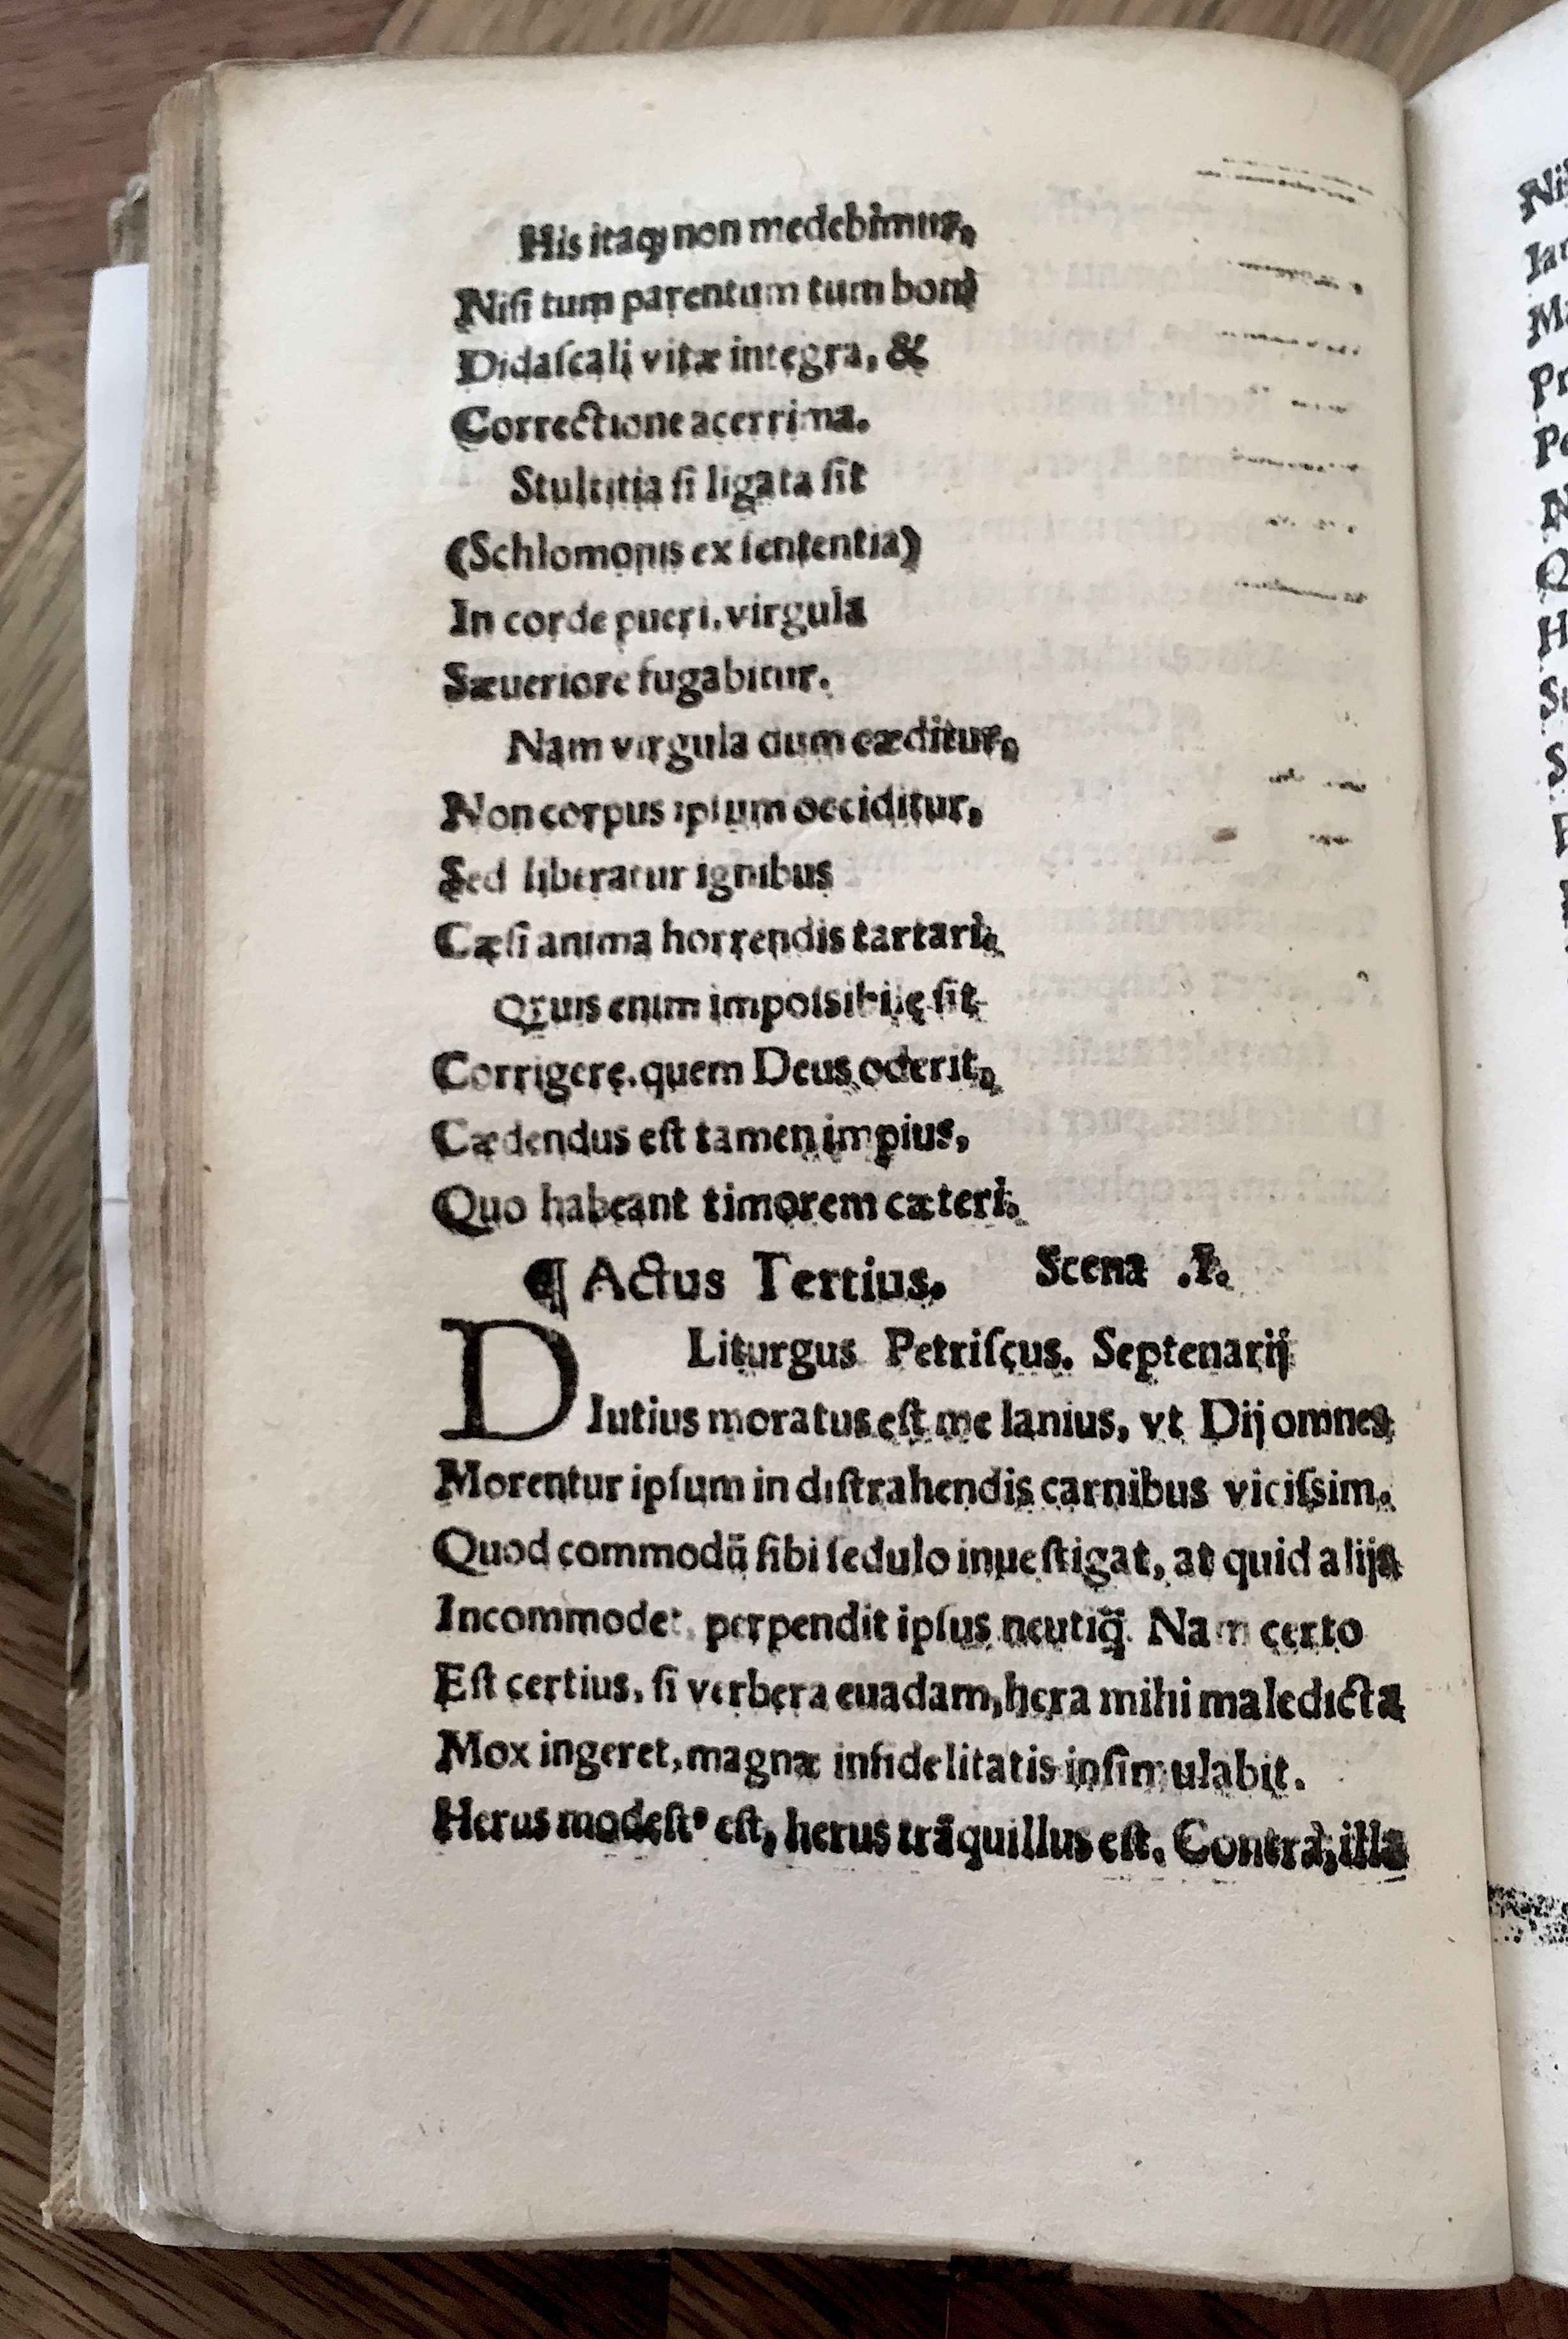 His itaqꝫ non medebimur,
Niſi tum parentum tum boni
Didaſcali vitæ integra, &
Correctione acerrima.
Stultitia ſi ligata ſit
(Schlomonis ex ſententia)
In corde pueri, virgula
Sæueriore fugabitur.
Nam virgula dum cæditur,
Non corpus ipſum occiditur,
Sed liberatur ignibus
Cæſi anima horrendis tartari.
Quis enim impoſsibile ſit
Corrigere, quem Deus oderit,
Cædendus eſt tamen impius,
Quo habeant timorem cæteri.
¶ Actus Tertius. Scena .I.
Liturgus Petriſcus. Septenarij
DIutius moratus eſt me lanius, vt Dij omnes
Morentur ipſum in diſtrahendis carnibus viciſsim.
Quod commodū ſibi ſedulo inueſtigat, at quid alijs
Incommodet, perpendit ipſus neutiq̄. Nam certo
Eſt certius, ſi verbera euadam, hera mihi maledicta
Mox ingeret, magnæ infidelitatis inſimulabit.
Herus modeſtꝰ eſt, herus trāquillus eſt. Contrà, illa